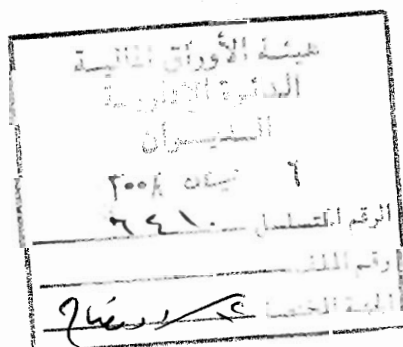 هيئة الأوراق المالية
الدائرة الإدارية
الديوان
٦ نيسان ٢٠٠٨
الرقم المتسلسل ٦٤١٠
رقم الملف
الجهة المختصة